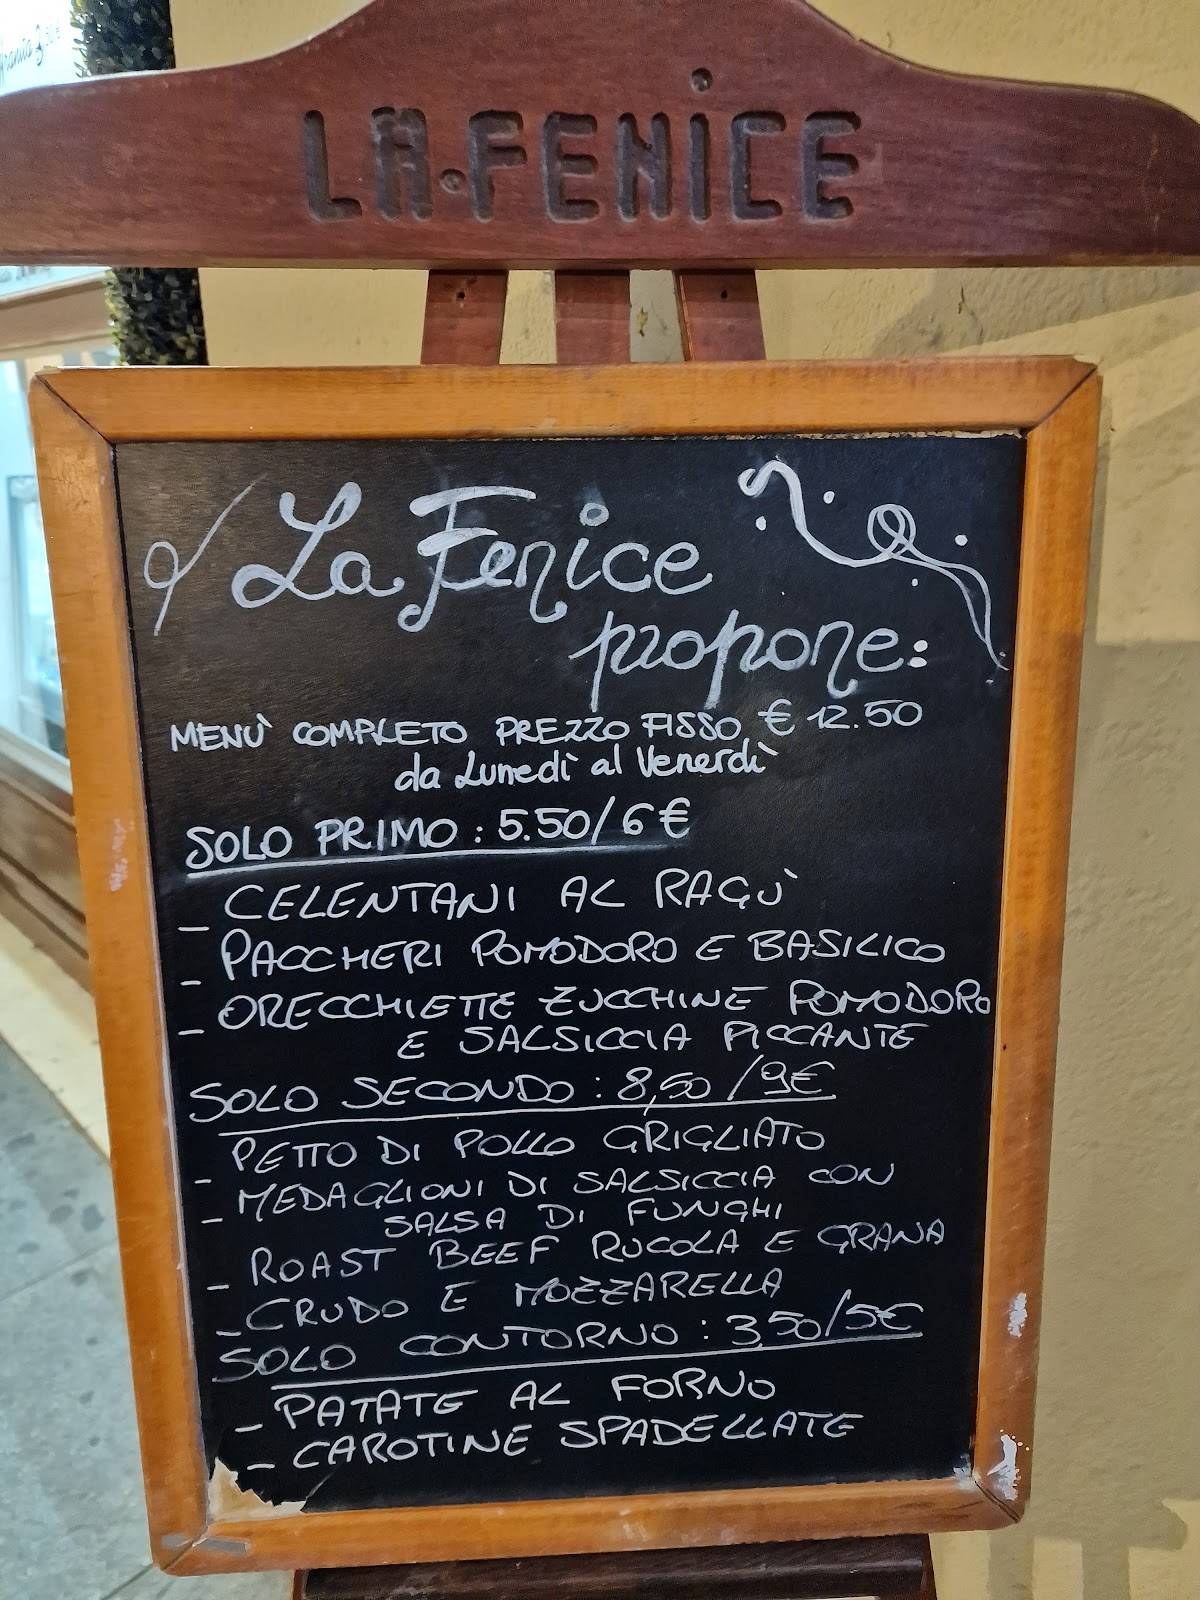 LA·FENICE
La Fenice
propone:
MENÙ COMPLETO PREZZO FISSO € 12.50
da Lunedì al Venerdì
SOLO PRIMO : 5.50/6€
- CELENTANI AL RAGÙ
- PACCHERI POMODORO E BASILICO
- ORECCHIETTE ZUCCHINE POMODORO
E SALSICCIA PICCANTE
SOLO SECONDO : 8,50/9€
- PETTO DI POLLO GRIGLIATO
- MEDAGLIONI DI SALSICCIA CON
SALSA DI FUNGHI
- ROAST BEEF RUCOLA E GRANA
- CRUDO E MOZZARELLA
SOLO CONTORNO : 3,50/5€
- PATATE AL FORNO
- CAROTINE SPADELLATE